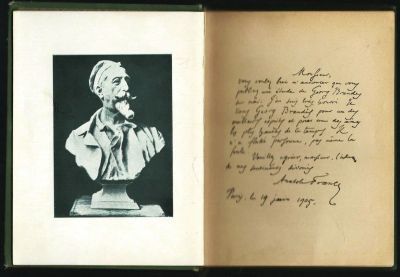 Monsieur,
vous voulez bien m'annoncer que vous
publiez une étude de Georg Brandès
sur moi. J'en suis très honoré. Je
tiens Georg Brandès pour un des
meilleurs esprits et pour une des âmes
les plus hautes de ce temps. Il
n'a flatté personne, pas même la
foule.
Veuillez agréer, monsieur,
de mes sentiments dévoués
Anatole France
Paris, le 19 juin 1905.